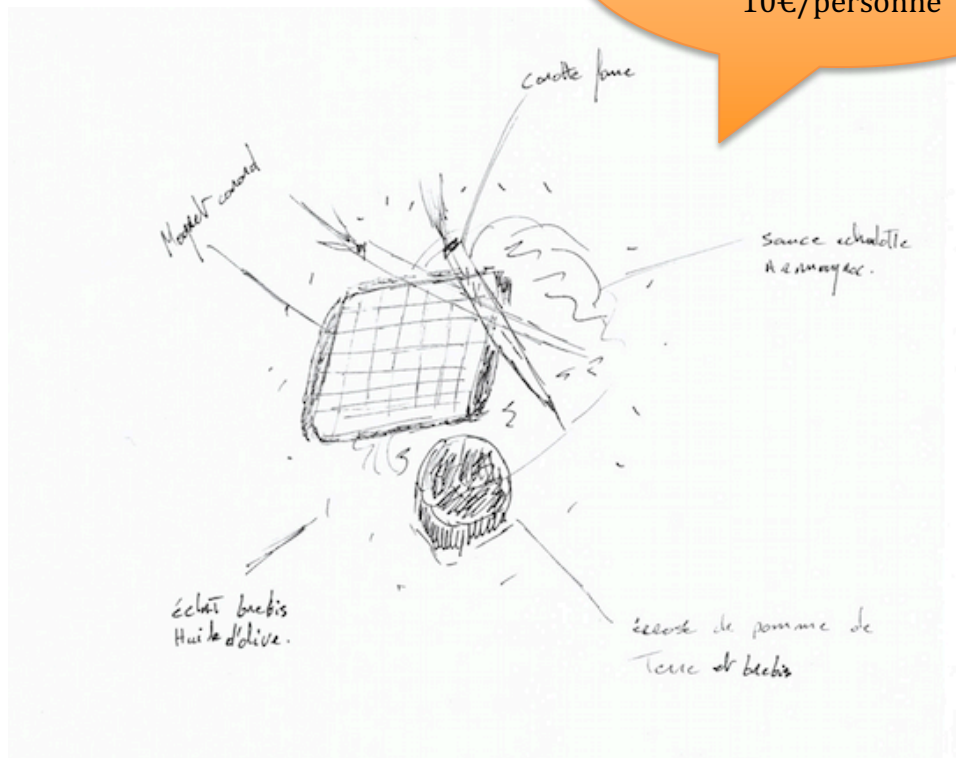 10€/personne
carotte fane
Magret canard
sauce echalotte
Armagnac.
éclat brebis
Huile d'olive.
écrasé de pomme de
Terre et brebis